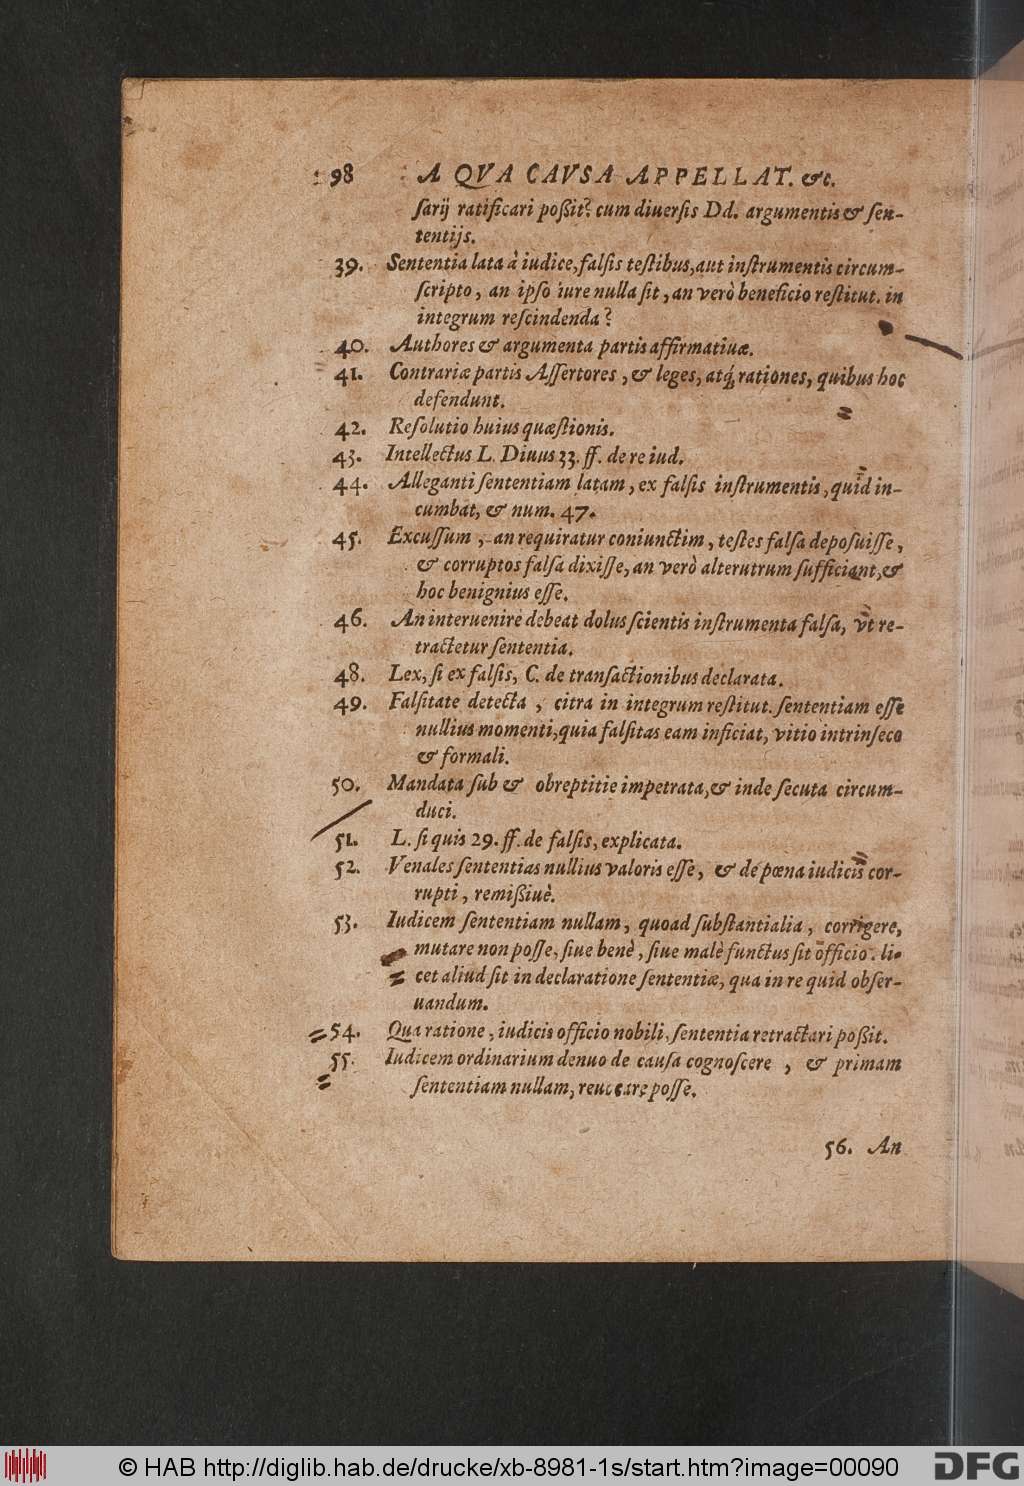 98 A QVA CAVSA APPELLAT. &c.
ſarij ratificari poßit? cum diuerſis Dd. argumentis & ſen-
tentijs.
39. Sententia lata à iudice, falſis teſtibus, aut inſtrumentis circum-
ſcripto, an ipſo iure nulla ſit, an verò beneficio reſtitut. in
integrum reſcindenda?
40. Authores & argumenta partis affirmatiuæ.
41. Contrariæ partis Aſſertores, & leges, atq́; rationes, quibus hoc
defendunt.
42. Reſolutio huius quæſtionis.
43. Intellectus L. Diuus 33. ff. de re iud.
44. Alleganti ſententiam latam, ex falſis inſtrumentis, quid in-
cumbat, & num. 47.
45. Excuſſum, an requiratur coniunctim, teſtes falſa depoſuiſſe,
& corruptos falſa dixiſſe, an verò alterutrum ſufficiant, &
hoc benignius eſſe.
46. An interuenire debeat dolus ſcientis inſtrumenta falſa, vt re-
tractetur ſententia.
48. Lex, ſi ex falſis, C. de tranſactionibus declarata.
49. Falſitate detecta, citra in integrum reſtitut. ſententiam eſſe
nullius momenti, quia falſitas eam inficiat, vitio intrinſeco
& formali.
50. Mandata ſub & obreptitie impetrata, & inde ſecuta circum-
duci.
51. L. ſi quis 29. ff. de falſis, explicata.
52. Venales ſententias nullius valoris eſſe, & de pœna iudicis cor-
rupti, remißiuè.
53. Iudicem ſententiam nullam, quoad ſubſtantialia, corrigere,
mutare non poſſe, ſiue benè, ſiue malè functus ſit officio. li-
cet aliud ſit in declaratione ſententiæ, qua in re quid obſer-
uandum.
54. Qua ratione, iudicis officio nobili, ſententia retractari poßit.
55. Iudicem ordinarium denuo de cauſa cognoſcere, & primam
ſententiam nullam, reuocare poſſe.
56. An
© HAB http://diglib.hab.de/drucke/xb-8981-1s/start.htm?image=00090
DFG